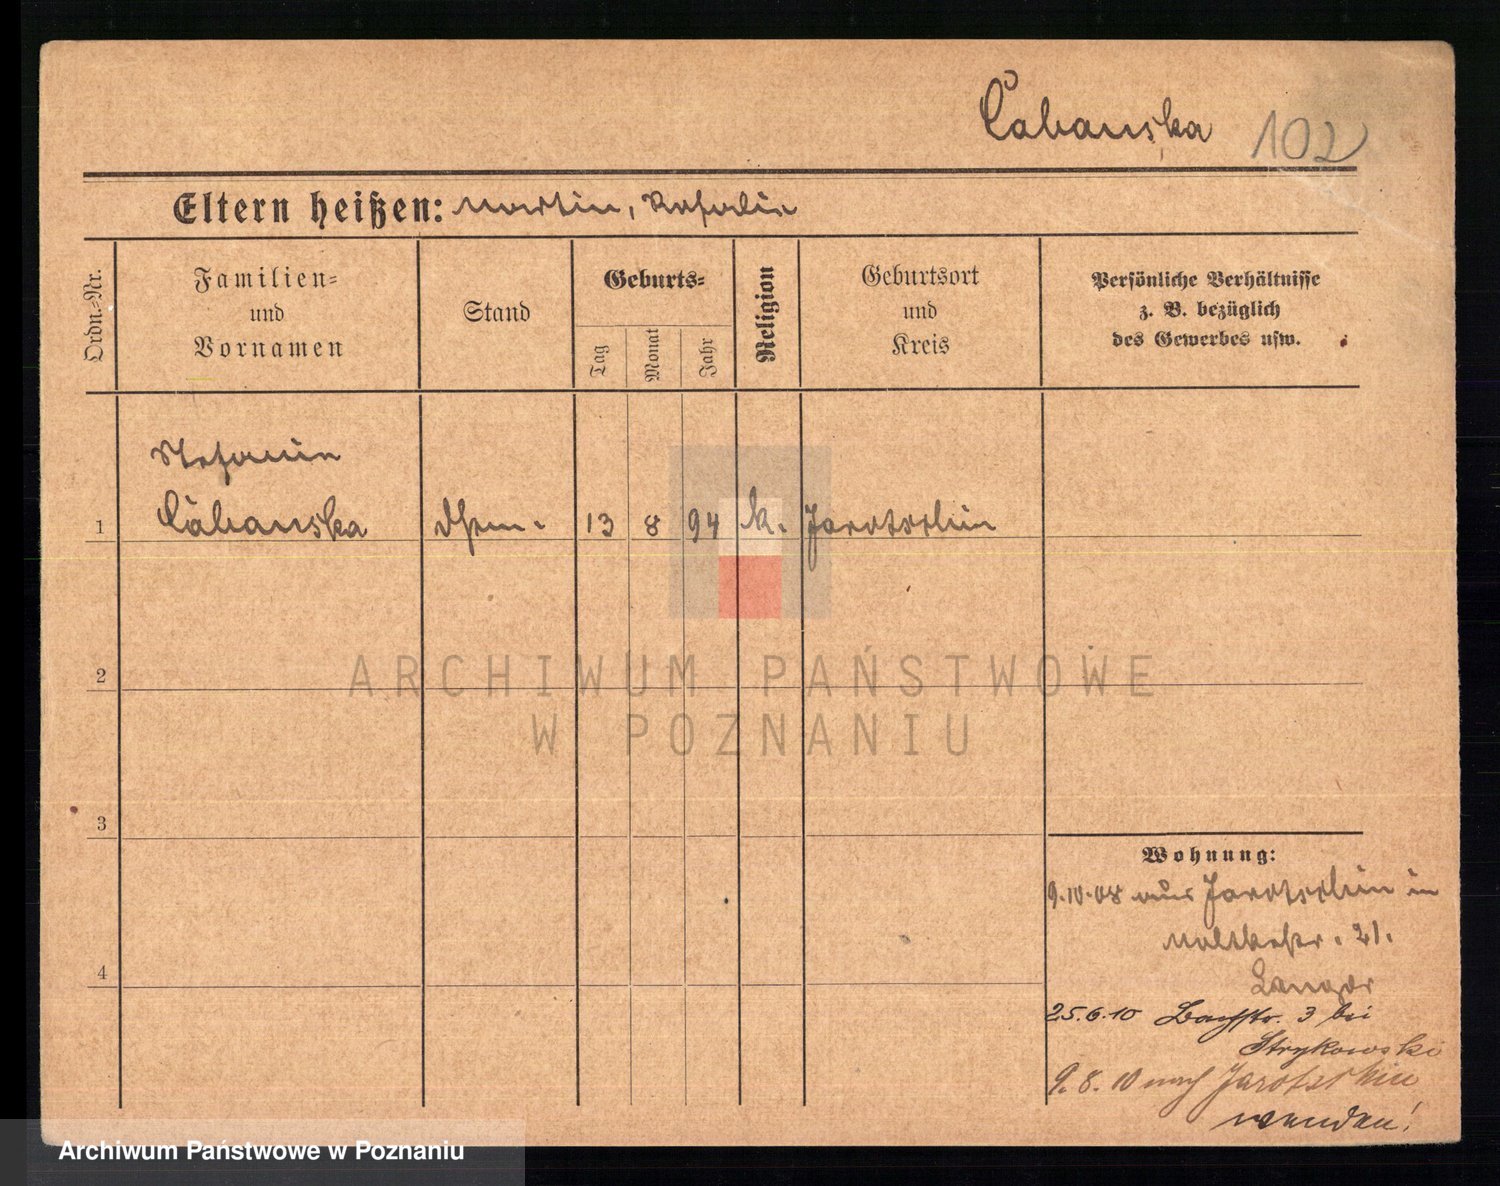 Cabanska 102
Eltern heißen: Martin, Rosalie
Ordn.=Nr.
Familien=
und
Vornamen
Stand
Geburts=
Tag
Monat
Jahr
Religion
Geburtsort
und
Kreis
Persönliche Verhältnisse
z. B. bezüglich
des Gewerbes usw.
Stefanie
1 Cabanska 13 8 94 k. Jarotschin
2
ARCHIWUM PAŃSTWOWE
W POZNANIU
3
Wohnung:
9.10.08 aus Jarotschin in
Moltkestr. 21.
Langer
4
25.6.10 Bachstr. 3 bei
Strykowski
9.8.10 nach Jarotschin
wenden!
Archiwum Państwowe w Poznaniu